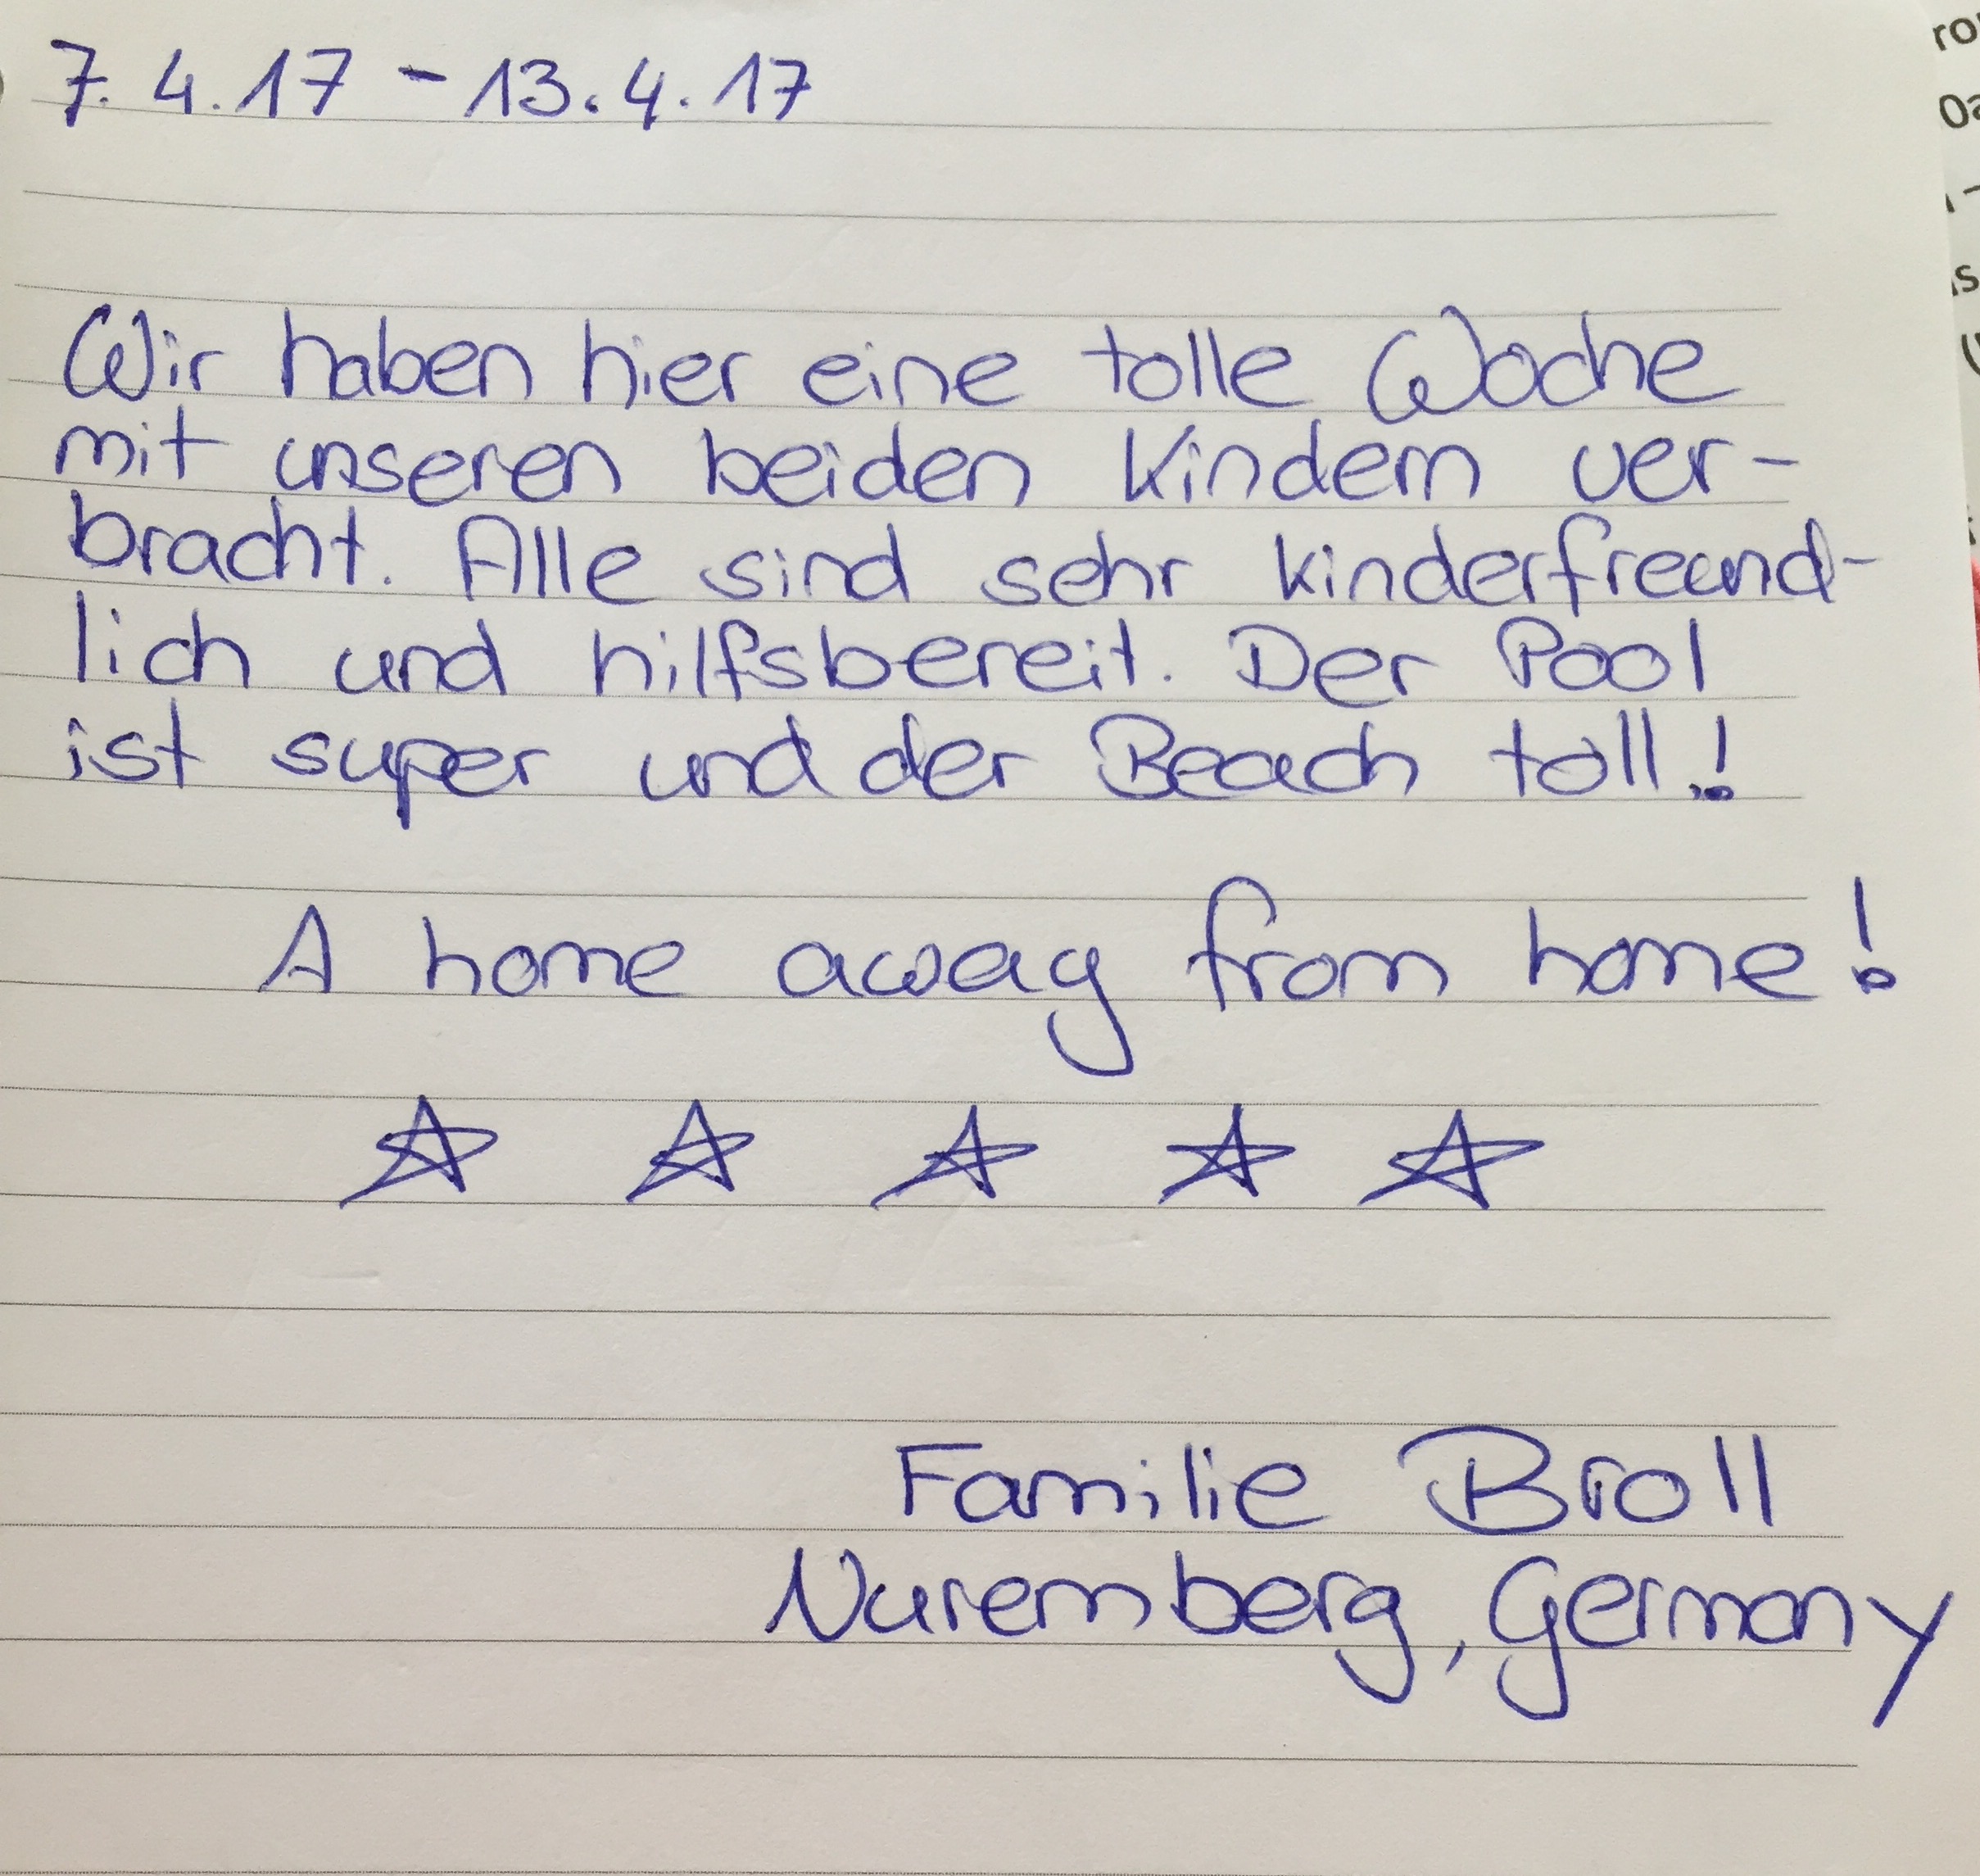 7.4.17 - 13.4.17
Wir haben hier eine tolle Woche
mit unseren beiden Kindern ver-
bracht. Alle sind sehr kinderfreund-
lich und hilfsbereit. Der Pool
ist super und der Beach toll!
A home away from home!
Familie Broll
Nuremberg, Germany